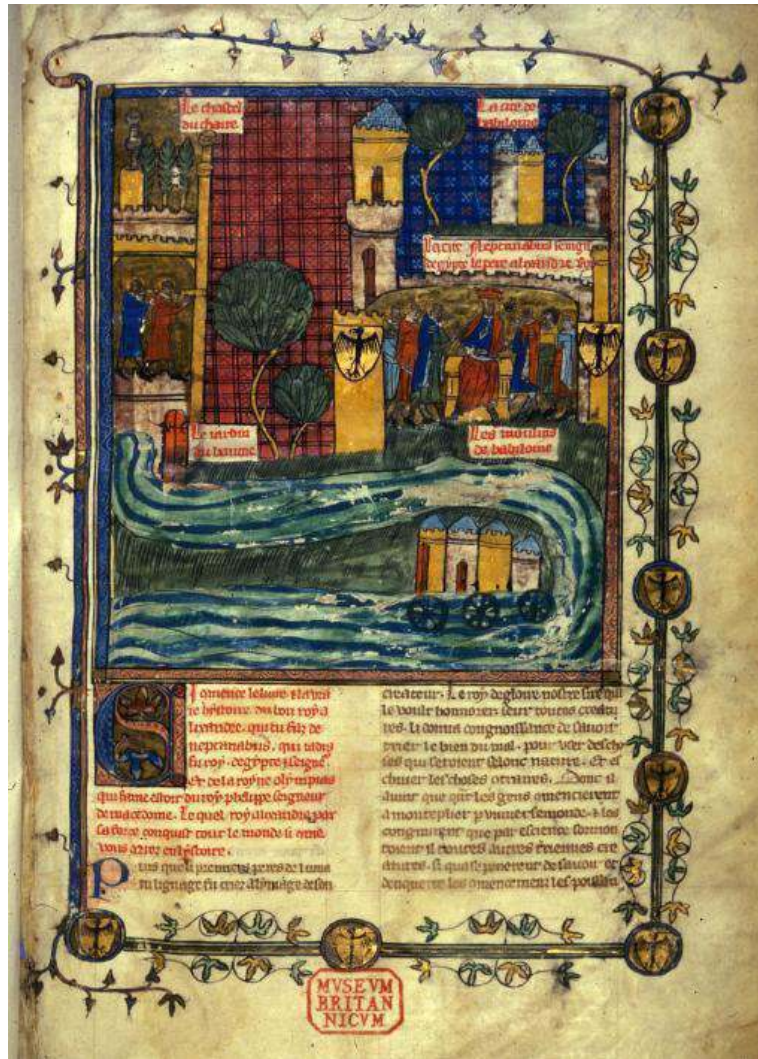 Le chastel
du chaire
La cite de
babiloine
La cite Neptanabus seingn
degypte le pere alexandre
Le jardin
du baume
Les moulins
de babiloine
Ci comence le livre et la vra
ie hystoire du bon roy a
lixandre. qui fu filz de
neptanabus. qui jadis
fu roy degypte et seigñ
Et de la royne olympias
qui fame estoit du roy phelippe seigneur
de macedoine. Le quel roy alixandre par
sa force conquist tout le monde si come
vous orrez en lystoire.
Puis que li premiers peres de luma
in lignage fu criez a lymage de son
createur. Le roy de gloire nostre sire qui
le voult honnorer seur toutes creatu
res. li donna congnoissance de savoir
trier le bien du mal. pour user des cho
ses qui seroient selonc nature. et es
chiver les choses Donc il
avint que les gens comencierent
a monteplier le monde. et les
congnurent que par escience
toutes autres terriennes cre
atures. si que se penerent de savoir et
denquerre les
MVSEVM
BRITAN
NICVM